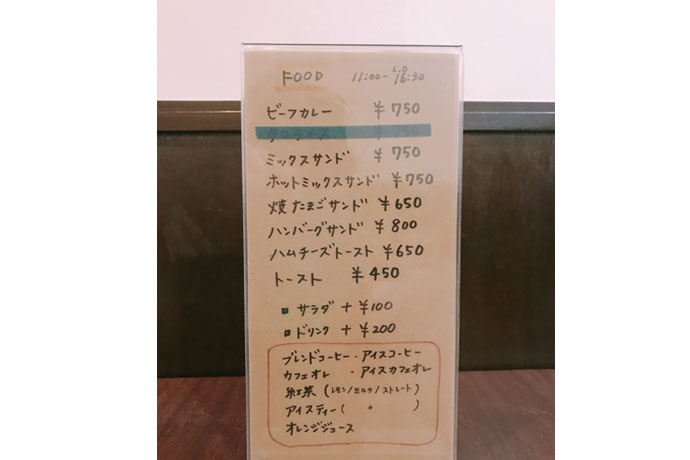 FOOD 11:00- L.O 16:30
ビーフカレー ¥750
タコライス ¥750
ミックスサンド ¥750
ホットミックスサンド ¥750
焼たまごサンド ¥650
ハンバーグサンド ¥800
ハムチーズトースト ¥650
トースト ¥450
サラダ + ¥100
ドリンク + ¥200
ブレンドコーヒー・アイスコーヒー
カフェオレ ・アイスカフェオレ
紅茶 (レモン/ミルク/ストレート)
アイスティー ( 〃 )
オレンジジュース